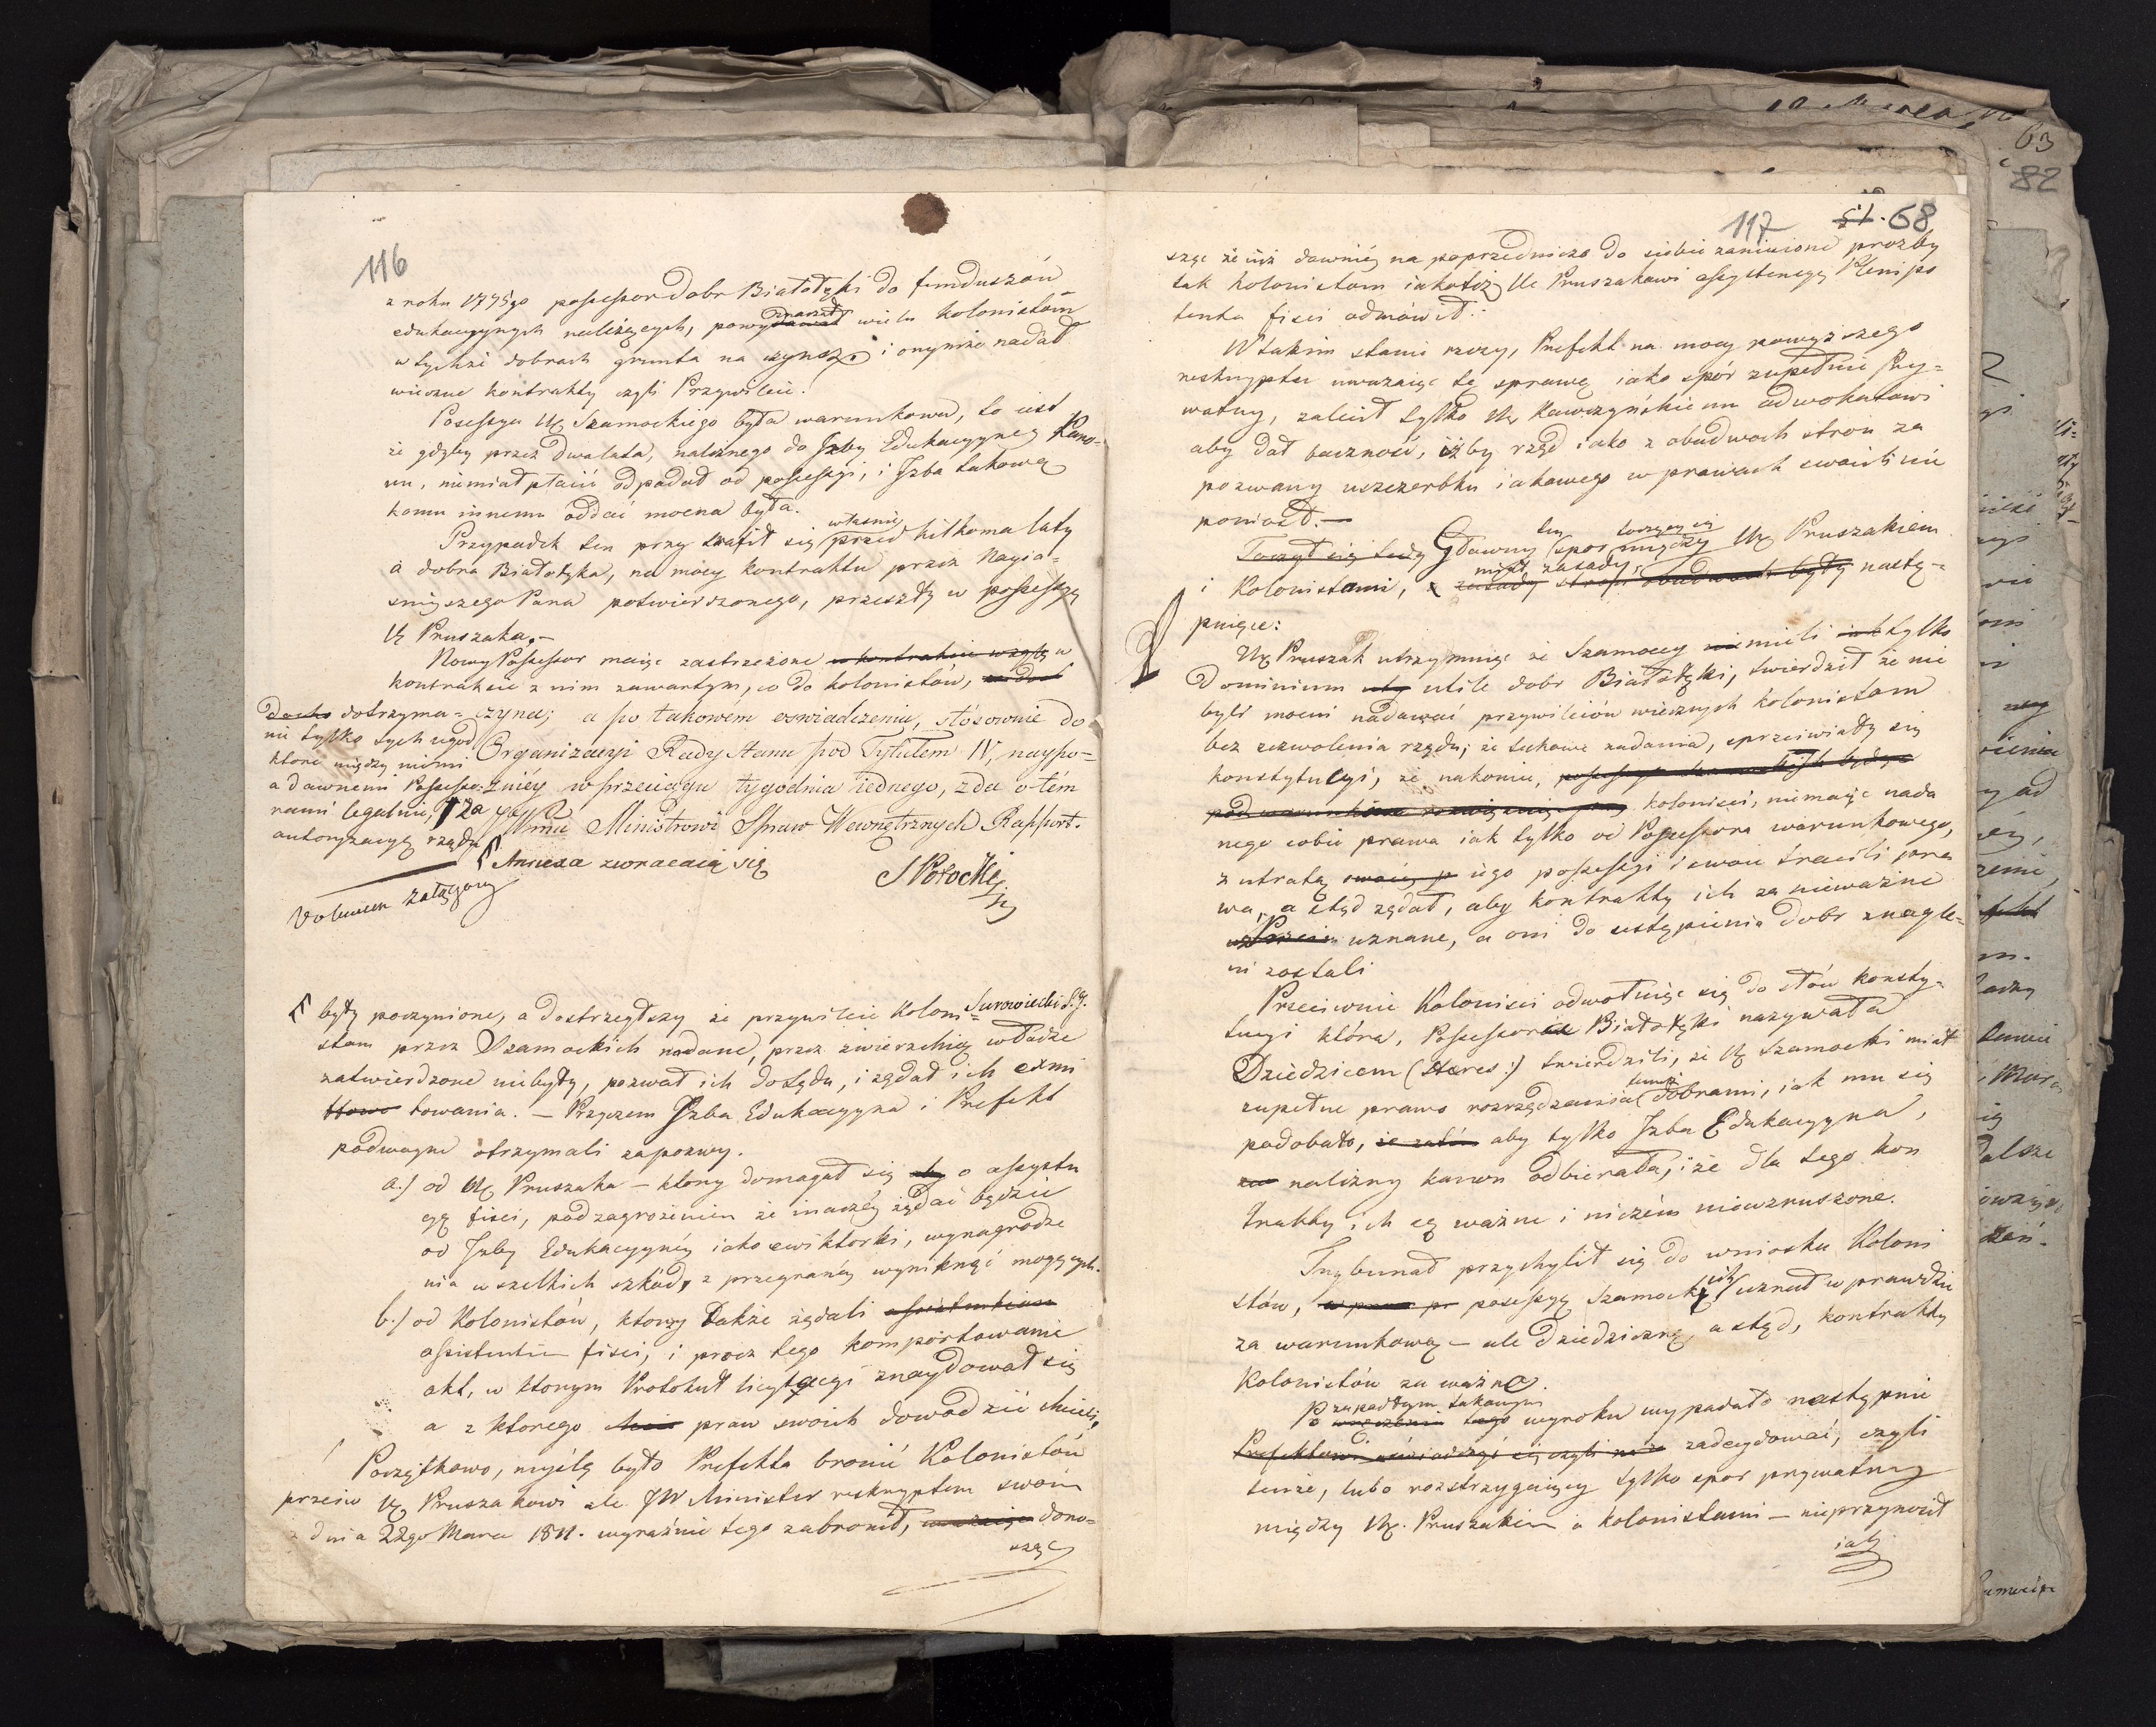 116
z roku 1775go possessor dobr Białołęki do funduszów
edukacyynych należących, powyznaczał wielu kolonistom
w tychże dobrach grunta na czynsze i onymże nadał
wieczne kontrakty czyli Przywileie.
Possessya W Szamockiego była warunkowa, to iest
że gdyby przez dwa lata, należnego do Izby Edukacyyney Kano-
nu, niemiał płacić odpadał od possessyi, i Izba takową
komu innemu oddać mocna była.
Przypadek ten przytrafił się właśnie przed kilkoma laty
a dobra Białołęka, na mocy kontraktu przez Nayia-
śnieyszego Pana potwierdzonego, przeszły w possessyą
W Pruszaka.–
Nowy Possessor maiąc zastrzeżone w kontrakcie wzglę w
kontrakcie z nim zawartym, co do kolonistów,
dotrzyma-
nie tylko tych ugod
ktore między niemi
a dawnemi Possesso-
rami legalnie, za
autoryzacyą rządu
czyna; a po takowém oswiadczeniu, stósownie do
Organizacyi Rady Stanu pod Tytułem IV, naypo-
zniéy w przeciągu tygodnia iednego, zda o tém
JWmu Ministrowi Spraw Wewnętrznych Rapport.
Annexa zwracaią się
SPotocki
Volumen załączony
Surowiecki S. J.
były poczynione, a dostrzegłszy że przywileie koloni-
stom przez Szamockich nadane, przez zwierzchnią władze
zatwierdzone niebyły, pozwał ich do sądu, i żądał ich exmi
ttowo towania. – Przyczem Izba Edukacyyna i Prefekt
podwoyne otrzymali zapozwy.
a.) od W Pruszaka – ktory domagał się o assysten
cyą fisci, pod zagrożeniem że inaczéy żądać będzie
od Izby Edukacyynéy iako ewiktorki, wynagrodze
nia wszelkich szkód, z przegranéy wyniknąć mogących.
b.) od Kolonistów, ktorzy także żądali assistentiam
assistentiam fisci, i procz tego komportowanie
akt, w ktorym Protokuł licytacyi znaydował się
a z ktorego praw swoich dowodzić chcieli,
Początkowo, myślą było Prefekta bronić Kolonistów
przeciw W Pruszakowi ale JW Minister reskryptem swoim
z dnia 22go Marca 1811. wyraźnie tego zabronił, dono-
sząc
117
51. 68
sząc że iuż dawniéy na poprzedniczo do siebie zaniesione prozby
tak kolonistom iakoteż W Pruszakowi assystencyą Plenipo
tenta fisci odmówił.
W takim stanie rzeczy, Prefekt na mocy powyższego
reskryptu uważaiąc tę sprawę iako spór zupełnie Pry-
watny, zalecił tylko W Kawczyńskiemu adwokatowi
aby dał baczność, iżby rząd iako z obudwóch stron za
pozwany uszczerbku iakowego w prawach swoich nie
poniosł.–
Toczył się tedy Gławny ten spor toczący się między W Pruszakiem
i Kolonistami, miał zasady zasady stron obudwoch były nastę-
puiące:
W Pruszak utrzymuiąc że Szamoccy nie mieli iak tylko
Dominium utile dobr Białołęki, twierdził że nie
byli mocni nadawać przywileiów wiecznych kolonistom
bez zezwolenia rządu; że takowe nadania, sprzeciwiały się
konstytucyi, że nakoniec, possessya Szamockich będąc
pod warunkiem kolonisci, niemaiąc nada
nego sobie prawa iak tylko od Possessora warunkowego,
z utratą swoiéy p iego possessyi i swoie tracili pra
wa, a ztąd żądał, aby kontrakty ich za nieważne
uznane, a oni do ustąpienia dobr znagle-
ni zostali
Przeciwnie Kolonisci odwołuiąc się do słów konsty-
tucyi która, Possessora Białołęki nazywała
Dziedzicem (Heres:) twierdzili, że W Szamocki miał
zupełne prawo rozrządzania temiż dobrami, iak mu się
podobało, że zatém aby tylko Izba Edukacyyna,
należny kanon odbierała, i że dla tego kon
trakty ich są ważne i niczém niewzruszone.
Trybunał przychylił się do wniosku Koloni
stów, possessyą Szamockich uznał wprawdzie
za warunkową – ale dziedziczną, a stąd, kontrakty
Kolonistów za ważne.
Po zapadłym takowym tego wyroku wypadało następnie
Prefektowi zadecydować, czyli
tenże, lubo rozstrzygaiący tylko spor prywatny
między W. Pruszakiem a kolonistami – nieprzynosił
iak
63
82